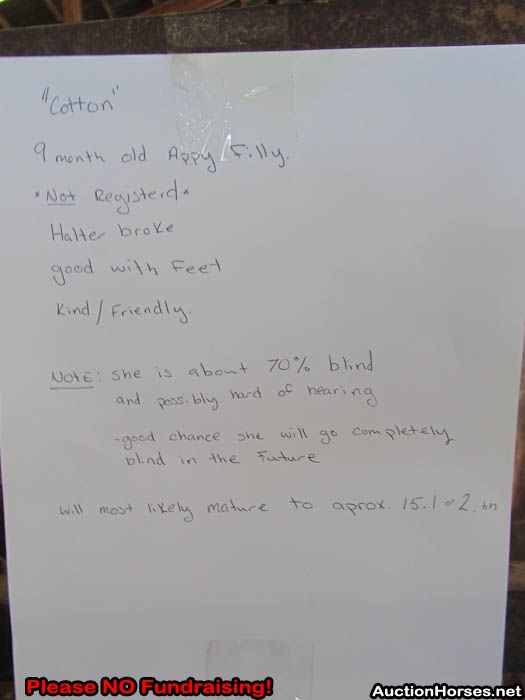 "Cotton"
9 month old Appy Filly.
*Not Registerd*
Halter broke
good with Feet
Kind/Friendly.
NOTE: she is about 70% blind
and possibly hard of hearing
-good chance she will go completely
blind in the Future
will most likely mature to aprox. 15.1 or 2. hh
Please NO Fundraising!
AuctionHorses.net